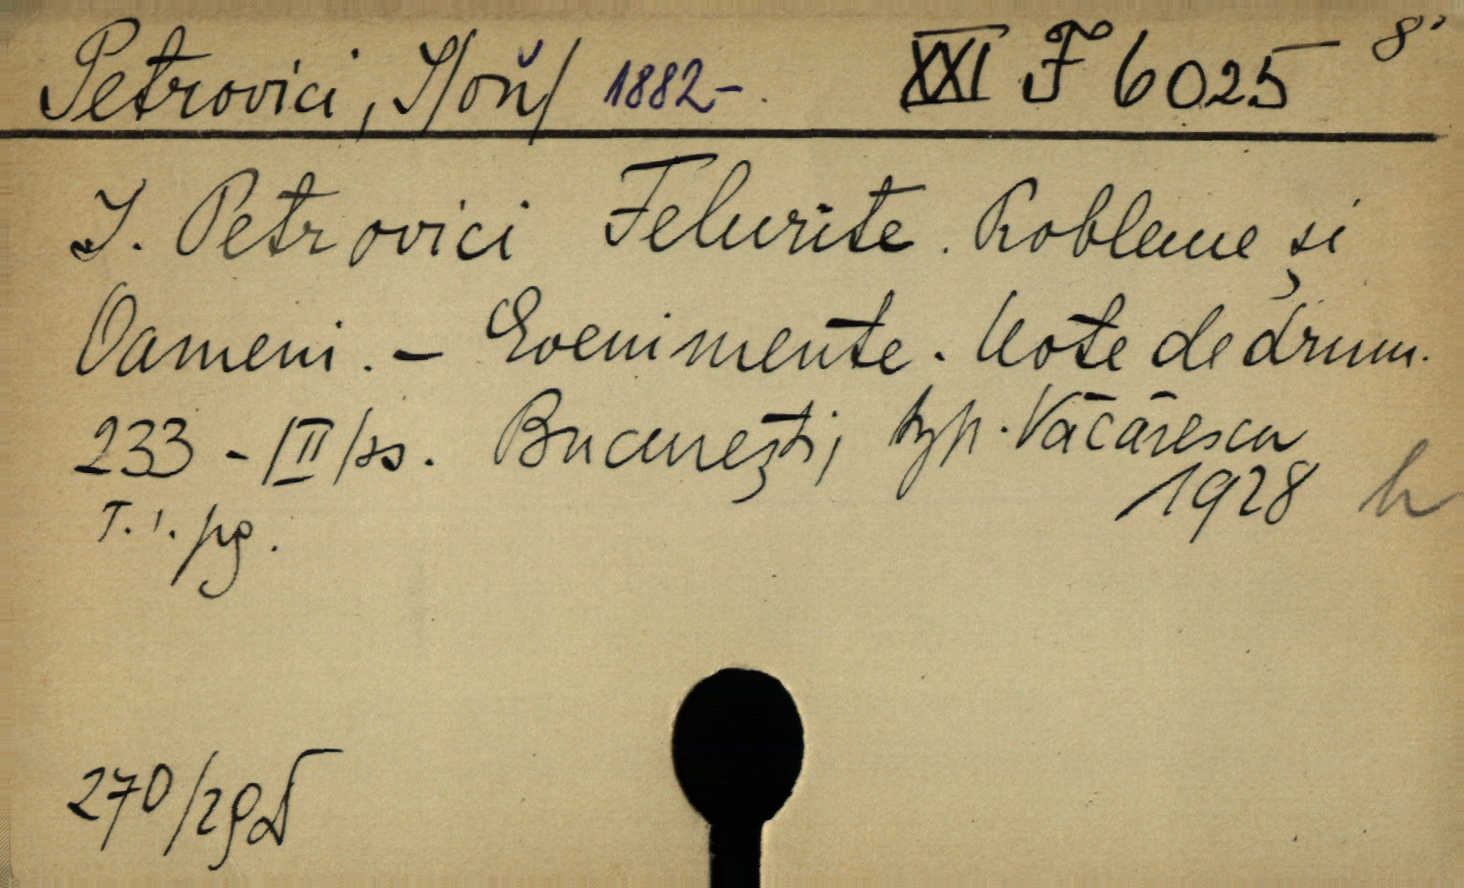 Petrovici, I/on/ 1882- . XXI F 6025 8°
I. Petrovici Felurite. Probleme și
Oameni. – Evenimente. Note de drum.
233 - /II/ ss. București, typ. Văcărescu
1928
T. 1. pg.
270/29